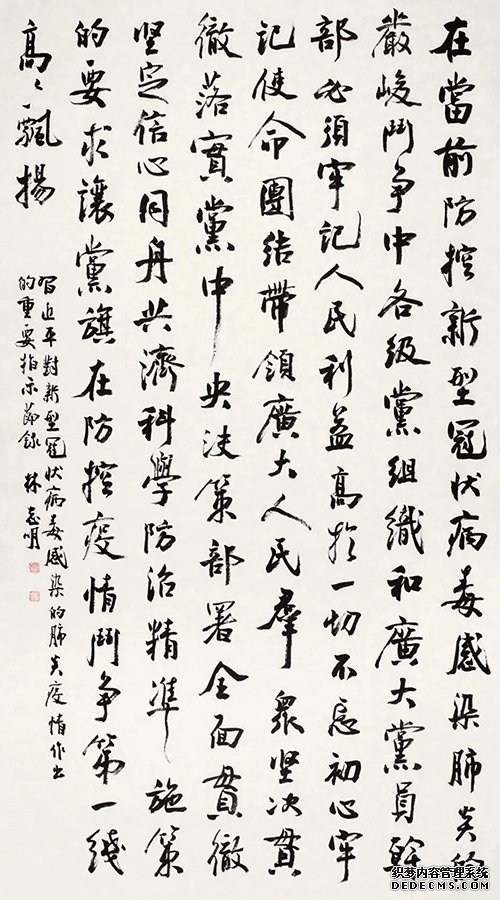 在當前防控新型冠状病毒感染肺炎的
嚴峻鬥爭中各級黨組織和廣大黨員幹
部必須牢記人民利益高於一切不忘初心牢
記使命團結帶領廣大人民群眾坚决貫
徹落實黨中央决策部署全面貫徹
坚定信心同舟共濟科學防治精準施策
的要求讓黨旗在防控疫情鬥爭第一綫
高々飄揚
習近平對新型冠状病毒感染的肺炎疫情作出
的重要指示節錄 林志明
织梦内容管理系统
DEDECMS.COM